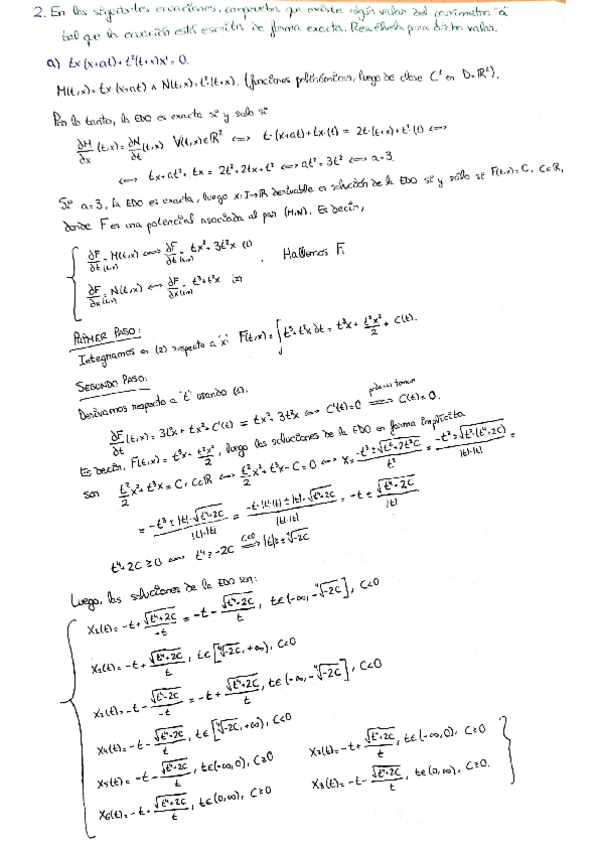 2. En las siguientes ecuaciones, comprueba que existe algún valor del parámetro "a"
tal que la ecuación está escrita de forma exacta. Resuélvela para dicho valor.
a) tx(x+at)+t²(t+x)x'=0.
M(t,x)=tx(x+at) ∧ N(t,x)=t²(t+x). (funciones polinómicas, luego de clase C¹ en D=ℝ²).
Por lo tanto, la EDO es exacta si y solo si
∂M/∂x (t,x) = ∂N/∂t (t,x) ∀(t,x)∈ℝ² ⟺ t·(x+at)+tx·(1) = 2t·(t+x)+t²·(1) ⟺
⟺ tx+at²+tx = 2t²+2tx+t² ⟺ at²=3t² ⟺ a=3.
Si a=3, la EDO es exacta, luego x:I→ℝ derivable es solución de la EDO si y sólo si F(t,x)=C, C∈ℝ,
donde F es una potencial asociada al par (M,N). Es decir,
∂F/∂t (t,x) = M(t,x) ⟺ ∂F/∂t (t,x) = tx²+3t²x (1)
. Hallemos F.
∂F/∂x (t,x) = N(t,x) ⟺ ∂F/∂x (t,x) = t³+t²x (2)
PRIMER PASO:
Integramos en (2) respecto a "x" F(t,x)=∫t³+t²x dt = t³x+t²x²/2+C(t).
SEGUNDO PASO:
Derivamos respecto a "t" usando (1).
∂F/∂t (t,x)=3t²x+tx²+C'(t) = tx²+3t²x ⟺ C'(t)=0 podemos tomar ⟹ C(t)=0.
Es decir, F(t,x)=t³x+t²x²/2, luego las soluciones de la EDO en forma implícita
son t²/2 x²+t³x=C, C∈ℝ ⟺ t²/2 x²+t³x-C=0 ⟺ x=(-t³±√(t⁶+2t²C))/t² = (-t³±√(t²·(t⁴+2C)))/(|t|·|t|) =
= (-t³±|t|·√(t⁴+2C))/(|t|·|t|) = (-t·|t|·|t|±|t|·√(t⁴+2C))/(|t|·|t|) = -t±√(t⁴+2C)/|t|
t⁴+2C≥0 ⟺ t⁴≥-2C C<0 ⟹ |t|≥⁴√(-2C)
Luego, las soluciones de la EDO son:
x₁(t)=-t+√(t⁴+2C)/-t = -t-√(t⁴+2C)/t, t∈(-∞,-⁴√(-2C)], C<0
x₂(t)=-t+√(t⁴+2C)/t, t∈[⁴√(-2C),+∞), C<0
x₃(t)=-t-√(t⁴+2C)/-t = -t+√(t⁴+2C)/t, t∈(-∞,-⁴√(-2C)], C<0
x₄(t)=-t-√(t⁴+2C)/t, t∈[⁴√(-2C),+∞), C<0
x₅(t)=-t-√(t⁴+2C)/t, t∈(-∞,0), C≥0 x₇(t)=-t+√(t⁴+2C)/t, t∈(-∞,0), C≥0
x₆(t)=-t+√(t⁴+2C)/t, t∈(0,∞), C≥0 x₈(t)=-t-√(t⁴+2C)/t, t∈(0,∞), C≥0.